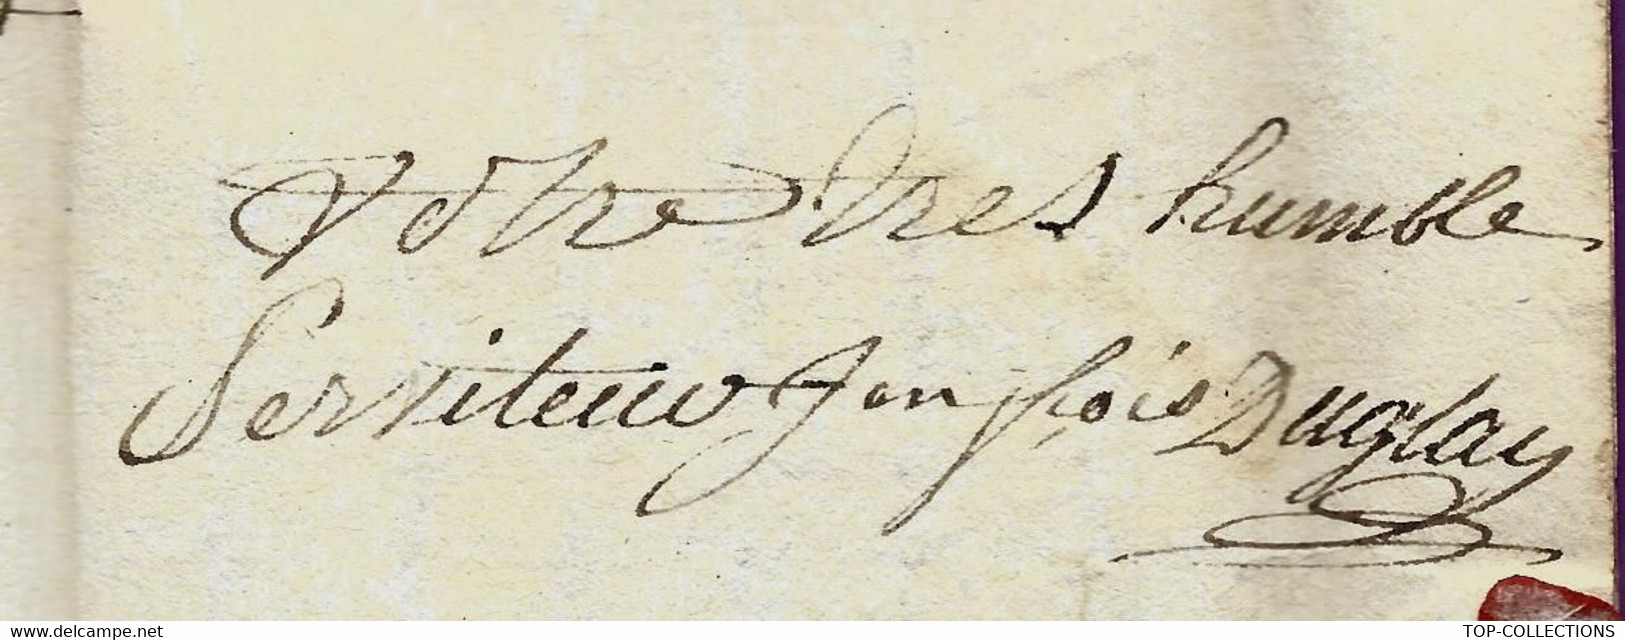 Votre tres humble
Serviteur Jn fçois Duglay
www.delcampe.net
TOP-COLLECTIONS